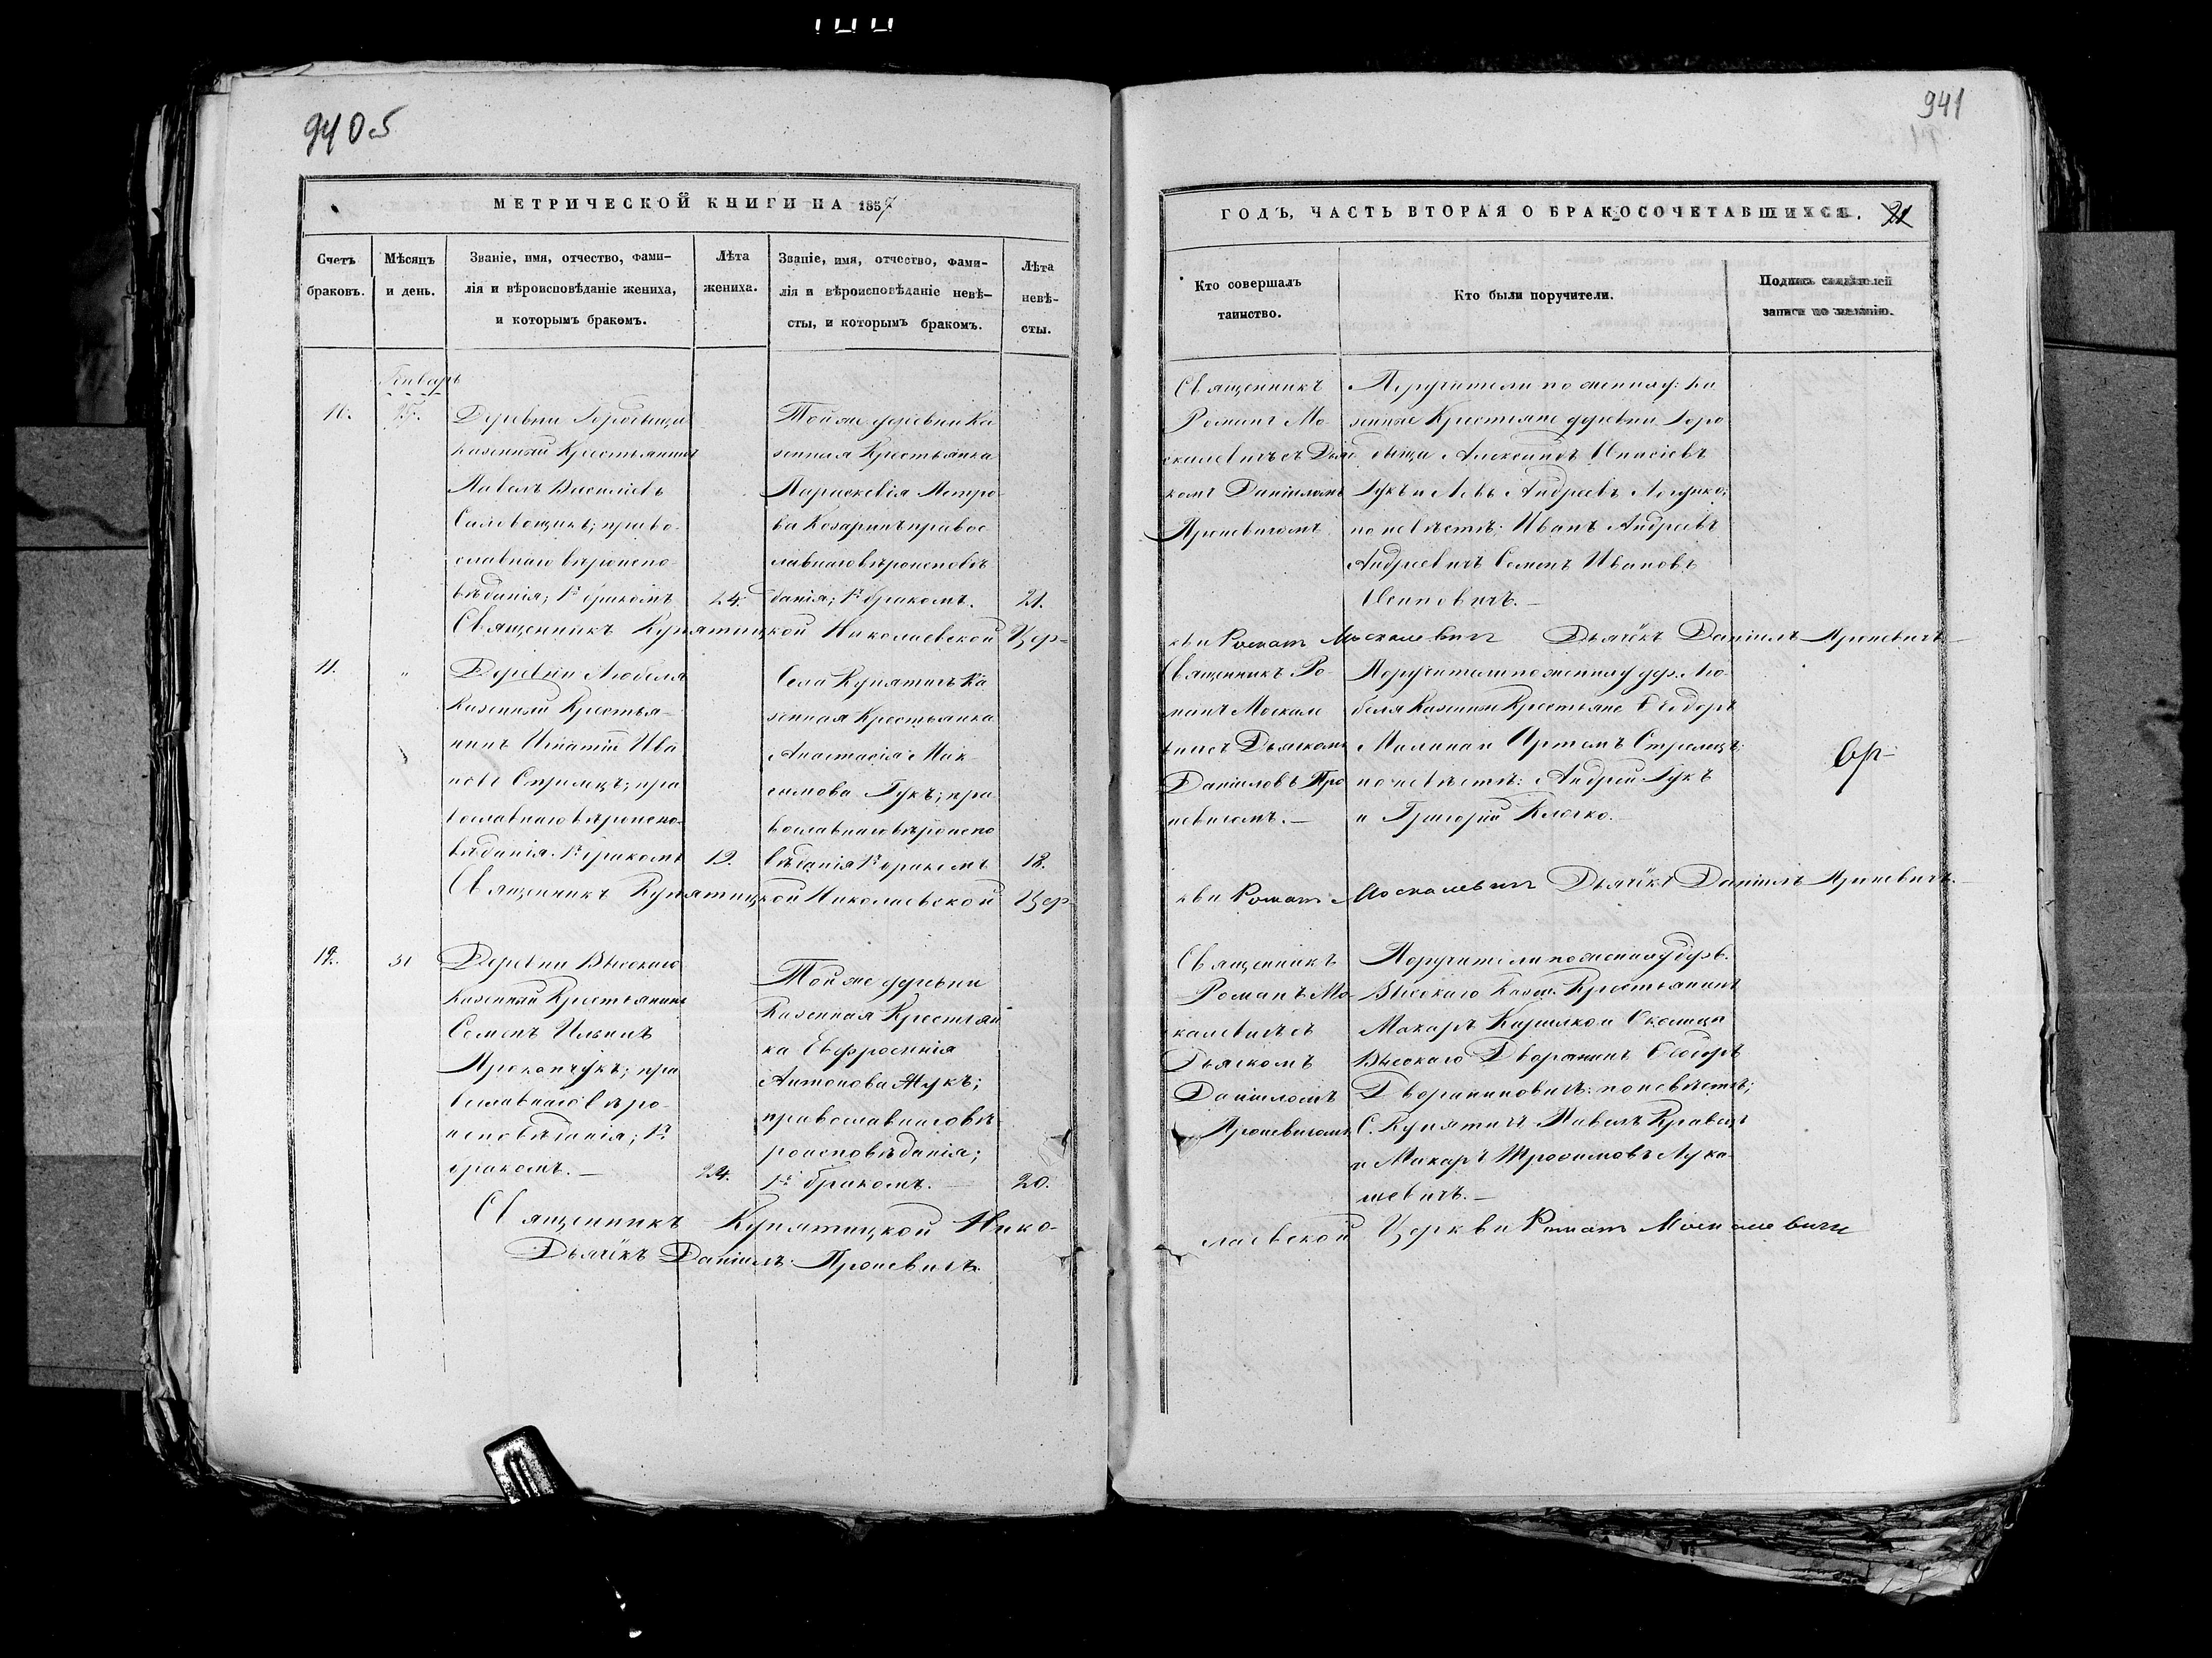 940 5
МЕТРИЧЕСКОЙ КНИГИ НА 1857
Счетъ браковъ.
Мѣсяцъ и день.
Званіе, имя, отчество, фами-
лія и вѣроисповѣданіе жениха,
и которымъ бракомъ.
Лѣта жениха.
Званіе, имя, отчество, фами-
лія и вѣроисповѣданіе невѣ-
сты, и которымъ бракомъ.
Лѣта невѣ-
сты.
Январь
10.
25.
Деревни Городища
казенный Крестьянинъ
Павелъ Василіевъ
право-
славнаго вѣроиспо-
вѣданія; 1мъ бракомъ
24.
Той же деревни Ка
зенная Крестьянка
Параскевія Петро
ва правос
лавнаго вѣроисповѣ
данія; 1мъ бракомъ.
21.
Священникъ Купятицкой Николаевской Цер-
11.
"
Деревни Любеля
Казенный Крестья-
нинъ Игнатій Ива
новъ Стрилецъ; пра
вославнаго вѣроиспо-
вѣданія 1мъ бракомъ
19.
Села Купятичъ Ка
зенная Крестьянка
Анастасія Мак-
симова Гукъ; пра
вославнаго вѣроиспо
вѣданія 1мъ бракомъ
18.
Священникъ Купятицкой Николаевской Цер
12.
31
Деревни Высокаго
Казенный Крестьянинъ
Семенъ Ильинъ
Прокопчукъ; пра
вославнаго вѣро-
исповѣданія; 1мъ
бракомъ.—
24.
Той же деревни
Казенная Крестьян
ка Евфросинія
Антонова Жукъ;
православнаго вѣ
роисповѣданія;
1мъ бракомъ.—
20.
Священникъ Купятицкой Нико-
Дьячёкъ Даніилъ Проневичъ.
941
ГОДЪ, ЧАСТЬ ВТОРАЯ О БРАКОСОЧЕТАВШИХСЯ. 21
Кто совершалъ
таинство.
Кто были поручители.
Подпись свидѣтелей
записи по желанію.
Священникъ
Романъ Мо
скалевичъ съ Дьяч
комъ Даніиломъ
Проневичемъ
Поручители по жениху: Ка
зенные Крестьяне деревни Горо
дища Александръ
Гукъ и Левъ Андреевъ
по невѣстѣ: Иванъ Андреевъ
Андреевичъ Семенъ Ивановъ
Осиповичъ.—
кви Романъ Москалевичъ Дьячёкъ Даніилъ Проневичъ—
Священникъ Ро-
манъ Москале
вичъ съ Дьячкомъ
Даніиловъ Про
невичемъ.—
Поручители по жениху дер. Лю-
беля Казенные Крестьяне Феодоръ
Малина и Артемъ Стрелецъ;
по невѣстѣ: Андрей Гукъ
и Григорій Клочко.—
кви Романъ Москалевичъ Дьячёкъ Даніилъ Проневичъ.—
Священникъ
Романъ Мо-
скалевичъ съ
Дьячкомъ
Даніиломъ
Проневичемъ
Поручители по жениху дерев.
Высокаго Казен. Крестьянинъ
Макаръ и Околицы
Высокаго Дворянинъ Феодоръ
Дворяниновичъ: по невѣстѣ;
С. Купятичъ Павелъ Кравецъ
и Макаръ Трофимовъ Лука
шевичъ.—
лаевской Церкви Романъ Москалевичъ